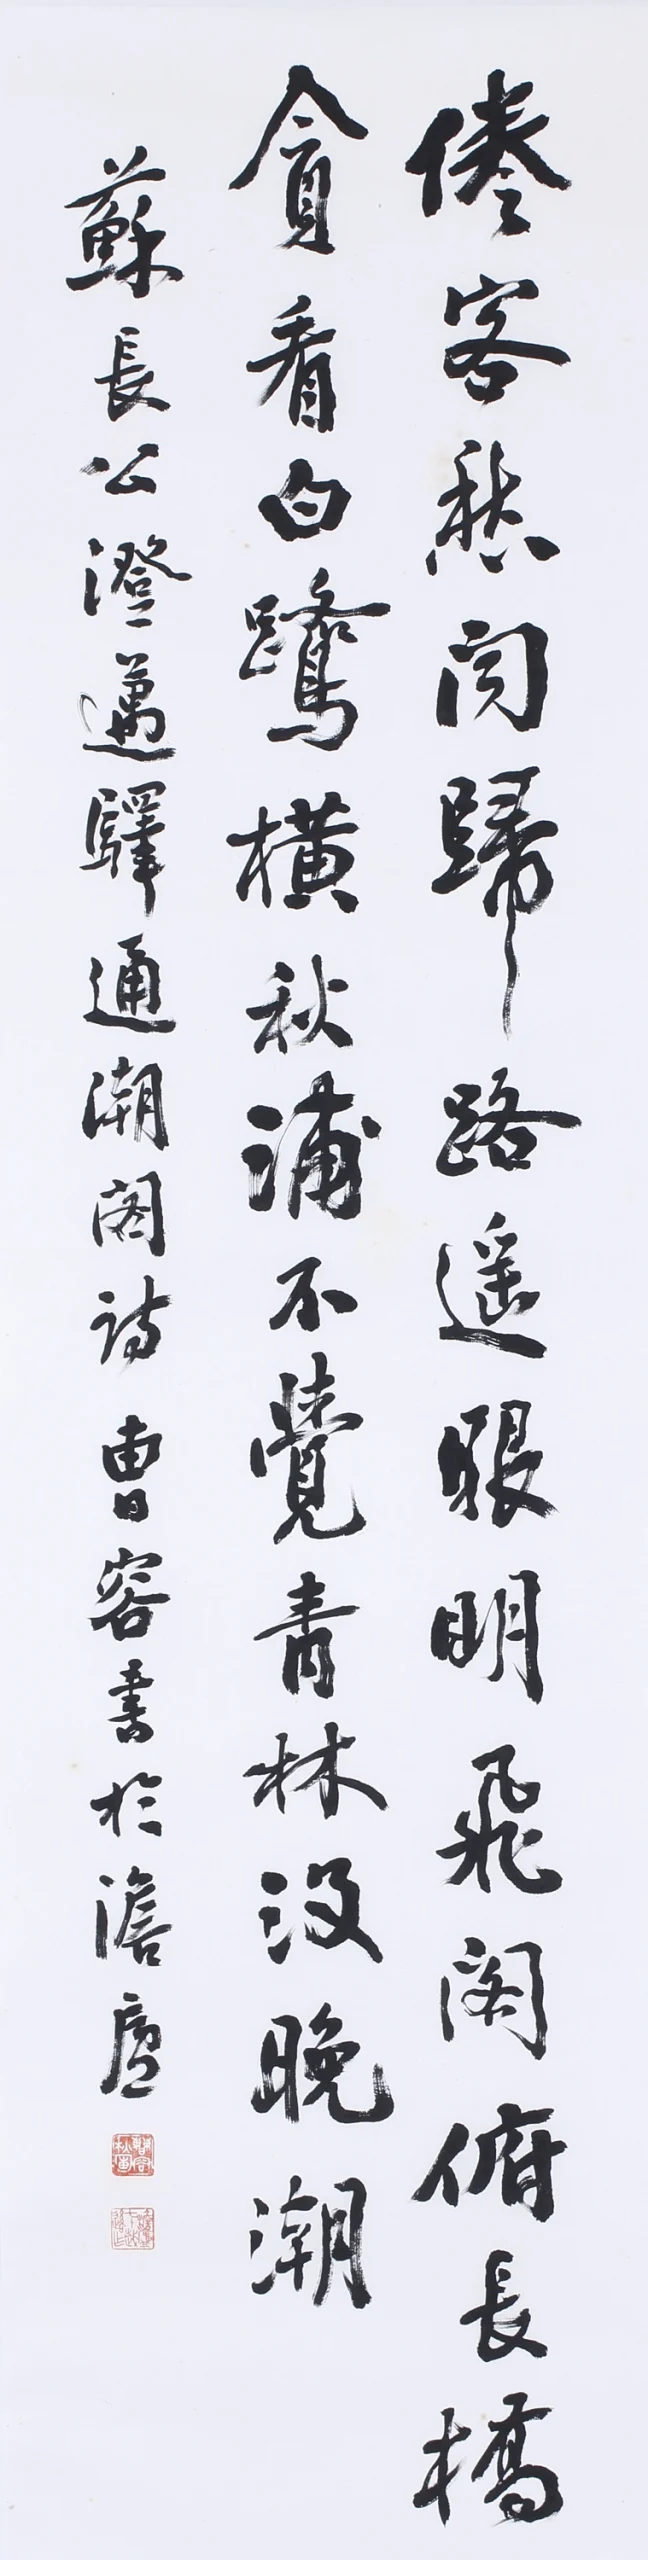 倦客愁聞歸路遥眼明飛閣俯長橋
貪看白鷺橫秋浦不覺青林没晚潮
蘇長公澄邁驛通潮閣詩 曹容書於澹廬